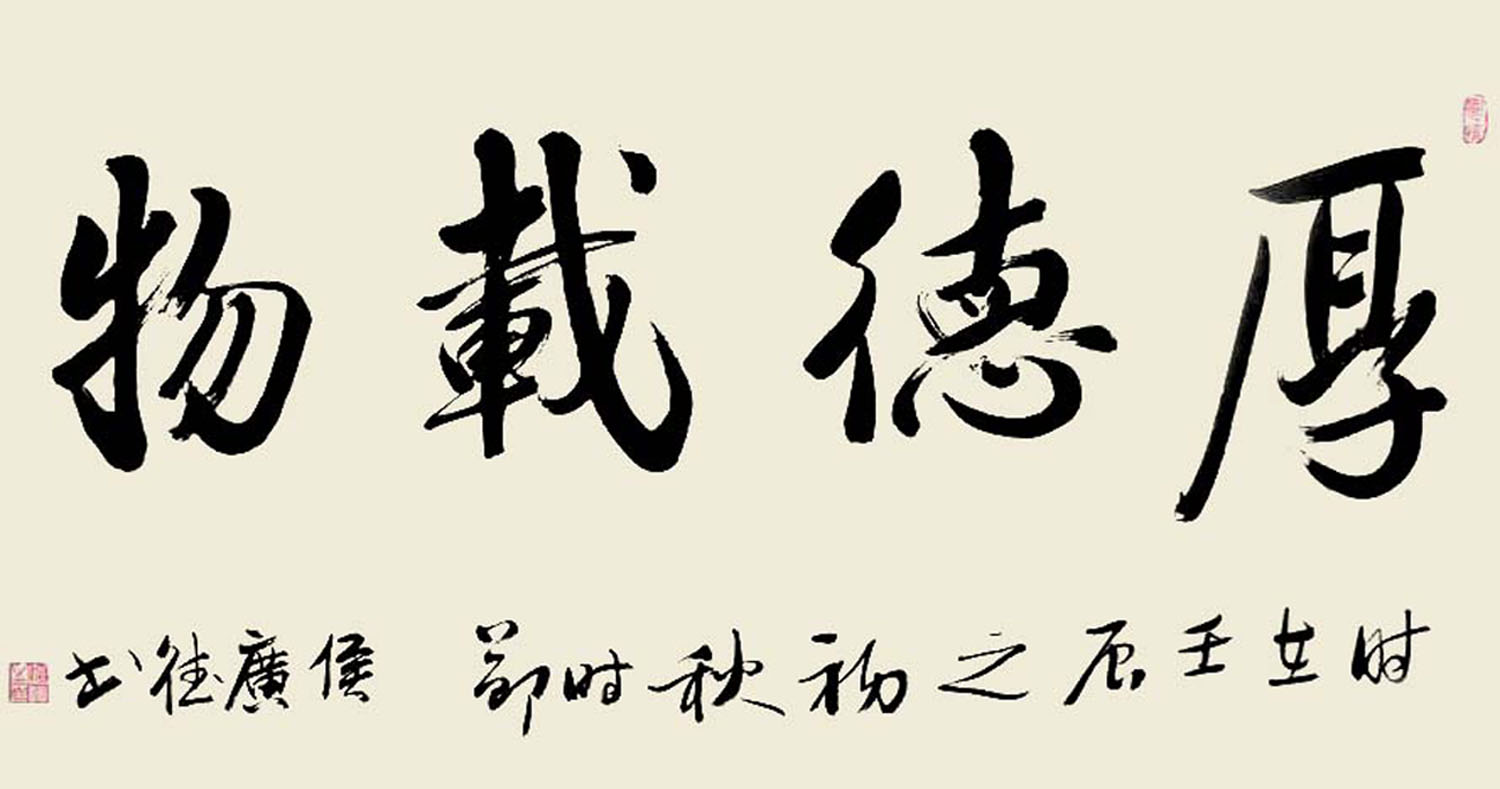 厚德載物
时在壬辰之初秋时节 侯廣德书